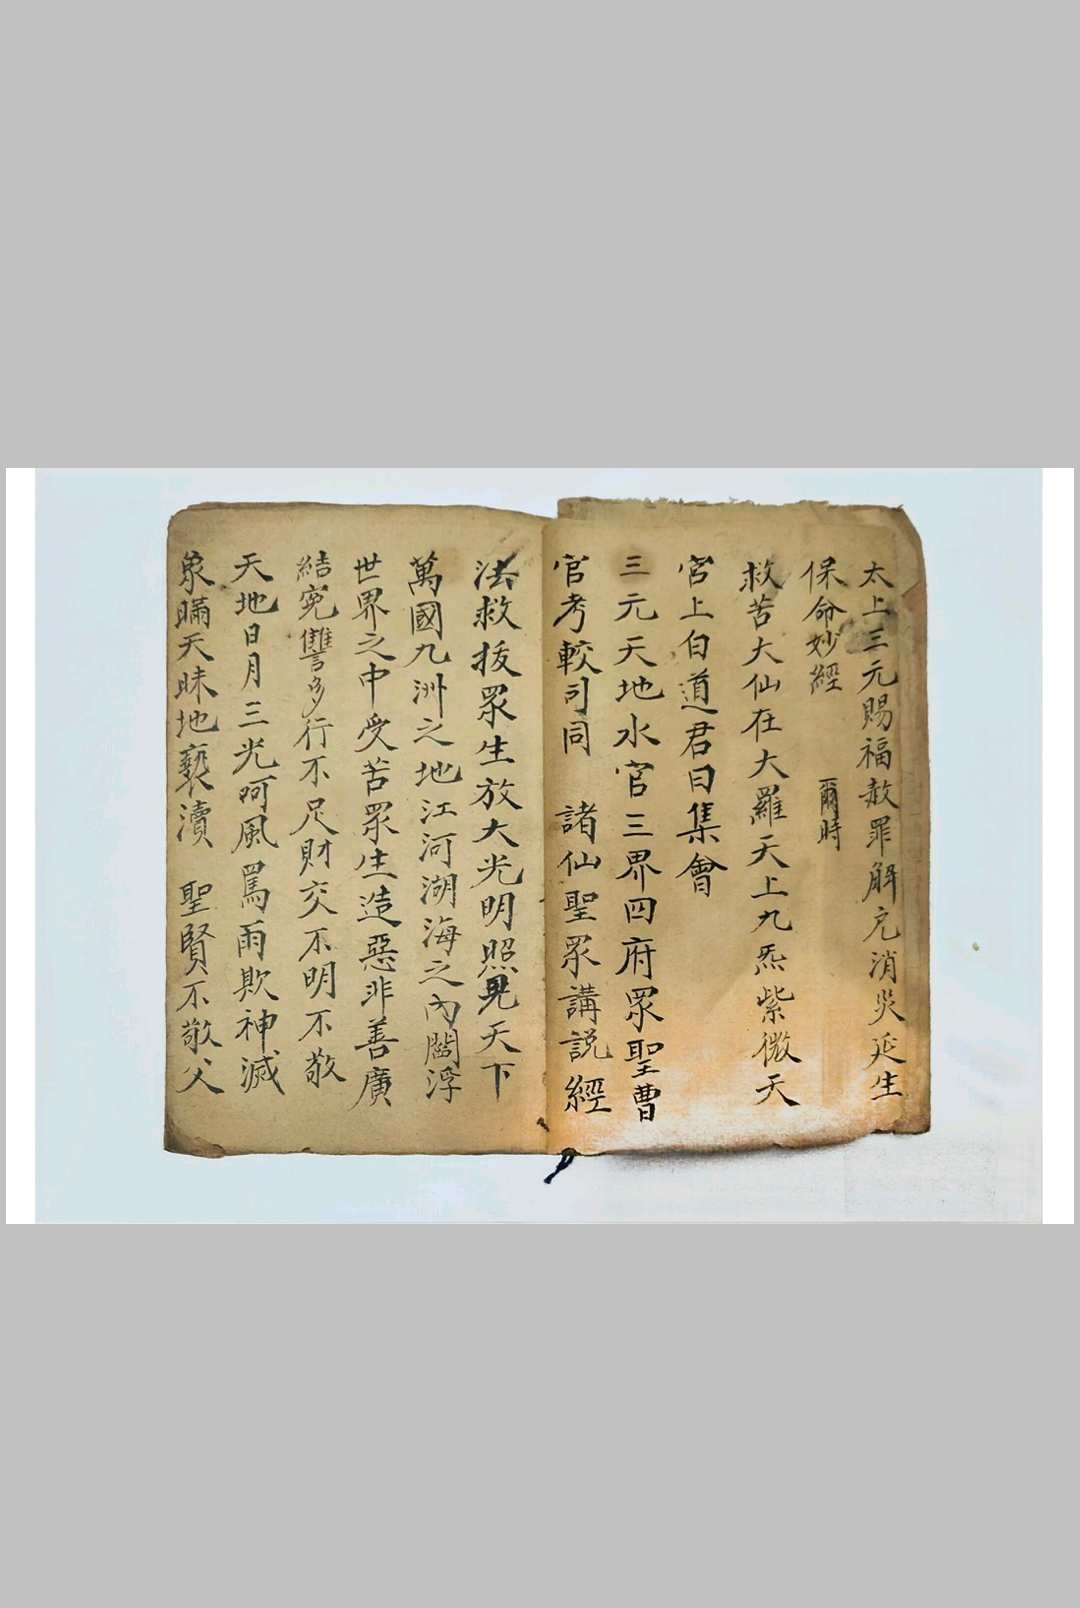 太上三元賜福赦罪解厄消災延生
保命妙經 爾時
救苦大仙在大羅天上九炁紫微天
宮上白道君曰集會
三元天地水官三界四府眾聖曹
官考較司同 諸仙聖眾講説經
法救拔眾生放大光明照見天下
萬國九洲之地江河湖海之內閻浮
世界之中受苦眾生造惡非善廣
結寃讐多行不足財交不明不敬
天地日月三光呵風罵雨欺神滅
象瞞天昧地褻瀆 聖賢不敬父